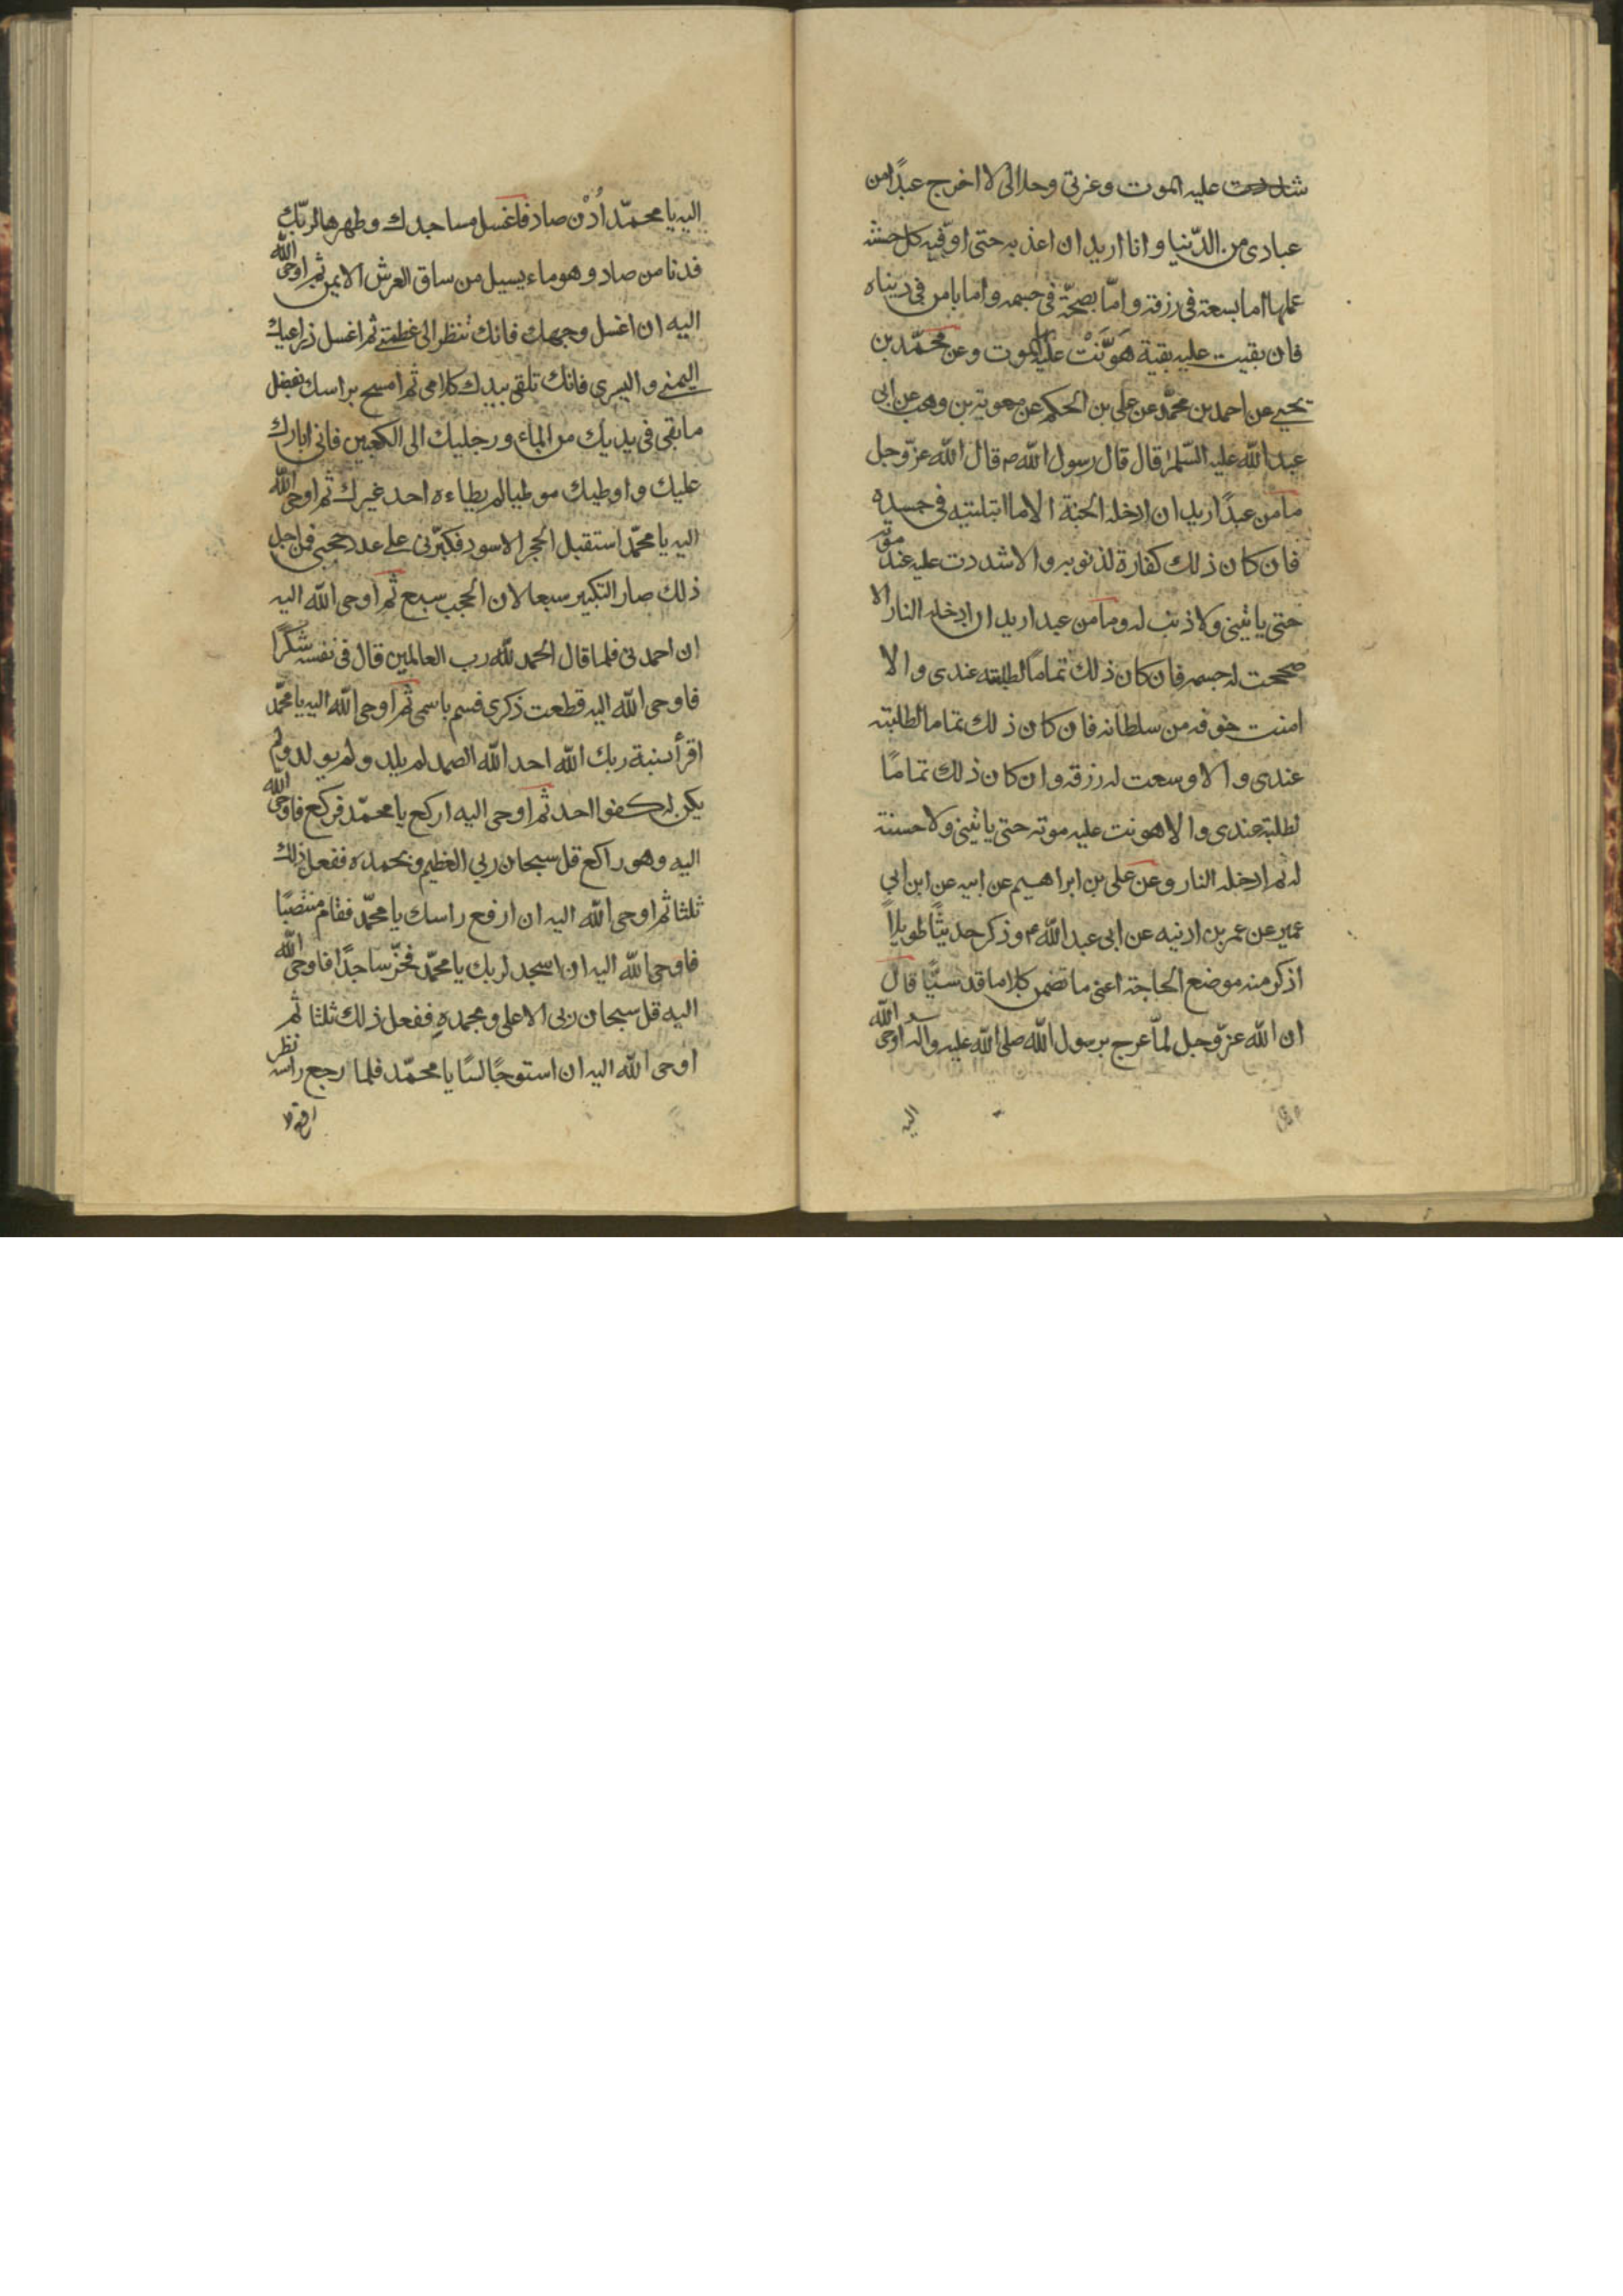 شددت عليه الموت وعزتى وجلالى لا اخرج عبدًا من
عبادى من الدّنيا وانا اريد ان اعذبه حتى اوفيه كل حسنه
عملها اما بسعة فى رزقه وامّا بصحّة فى جسمه واما بامن فى دنياه
فان بقيت عليه بقية هَوَّنَتْ عليه الموت وعن محمّد بن
يحيى عن احمد بن محمّد عن على بن الحكم عن معوية بن وهب عن ابى
عبد الله عليه السّلم قال قال رسول الله ص قال الله عزّ وجل
ما من عبدًا اريد ان ادخله الجنة الا ما ابتليته فى جسده
فان كان ذلك كفارة لذنوبه والا شددت عليه عند موته
حتى ياتينى ولا ذنب له وما من عبد اريد ان ادخله النار الا
صححت له جسمه فان كان ذلك تمامًا لطلبته عندى والا
امنت خوفه من سلطانه فان كان ذلك تماما لطلبته
عندى والا وسعت له رزقه وان كان ذلك تمامًا
لطلبة عندى والا هونت عليه موته حتى ياتينى ولا حسنة
له ثم ادخله النار وعن على بن ابراهيم عن ابيه عن ابن ابى
عمير عن عمر بن اذنيه عن ابى عبد الله ع وذكر حديثًا طويلاً
اذكر منه موضع الحاجة اعنى ما تضمن كلاما قدسيًّا قال
ان الله عزّ وجل لمّا عرج برسول الله صلى الله عليه واله اوحى الله
اليه
اليه يا محمّد اُدْن صاد فاغسل مساجدك وطهرها لربّك
فدنا من صاد وهو ماء يسيل من ساق العرش الايمن ثم اوحى الله
اليه ان اغسل وجهك فانك تنظر الى عظمتى ثم اغسل ذراعيك
اليمنى واليسرى فانك تلقى بيدك كلامى ثم امسح براسك بفضل
ما بقى فى يديك من الماء ورجليك الى الكعبين فانى ابارك
عليك واوطيك موطيا لم يطاءه احد غيرك ثم اوحى الله
اليه يا محمّد استقبل الحجر الاسود فكبّرنى على عدد حجبى فمن اجل
ذلك صار التكبير سبعا لان الحجب سبع ثم اوحى الله اليه
ان احمدنى فلما قال الحمد لله رب العالمين قال فى نفسه شكرًا
فاوحى الله اليه قطعت ذكرى فسم باسمى ثم اوحى الله اليه يا محمّد
اقرأ نسبة ربك الله احد الله الصمد لم يلد ولم يولد ولم
يكن له كفوا احد ثم اوحى اليه اركع يا محمّد فركع فاوحى الله
اليه وهو راكع قل سبحان ربي العظيم وبحمده ففعل ذلك
ثلثا ثم اوحى الله اليه ان ارفع راسك يا محمّد فقام منتصبًا
فاوحى الله اليه ان اسجد لربك يا محمّد فخرّ ساجدًا فاوحى الله
اليه قل سبحان ربى الاعلى وبحمدهِ ففعل ذلك ثلثا ثم
اوحى الله اليه ان استو جالسًا يا محمّد فلما رجع راسه نظر